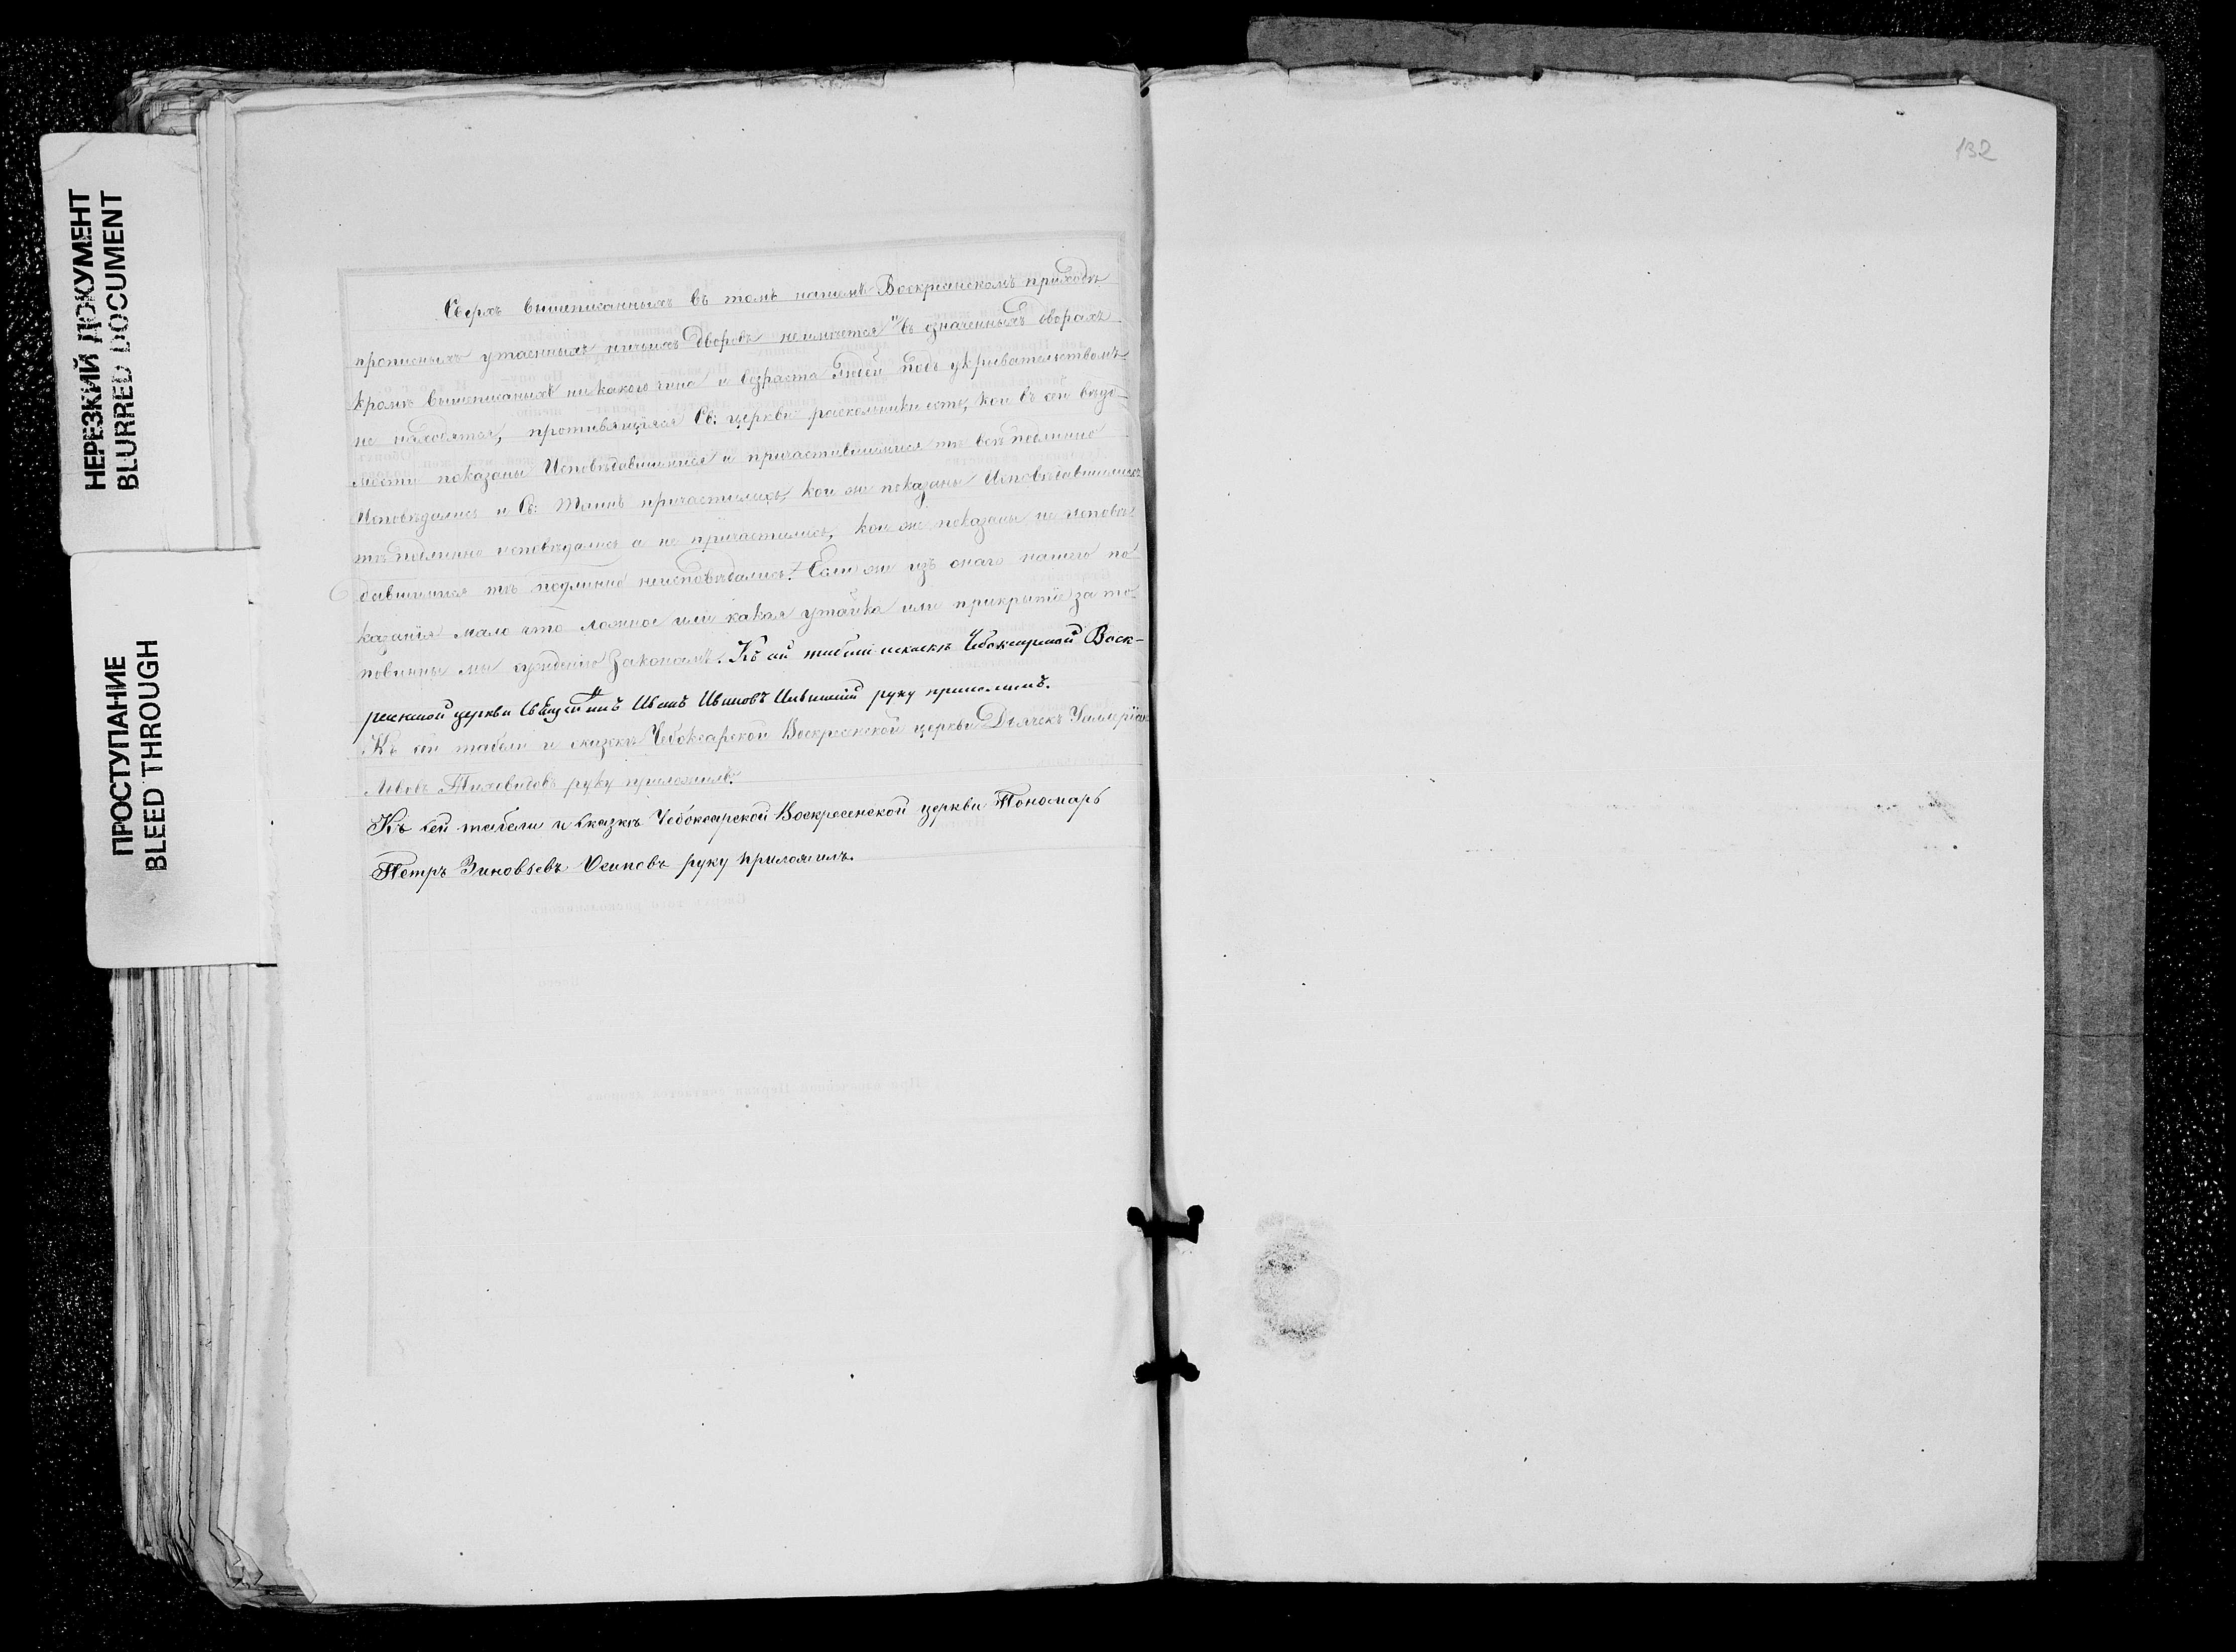 НЕРЕЗКИЙ ДОКУМЕНТ
BLURRED DOCUMENT
ПРОСТУПАНИЕ
BLEED THROUGH
132
Сверхъ вышеписанныхъ въ томъ нашемъ Воскресенскомъ приходѣ
прописныхъ утаенныхъ ничьихъ дворовъ неимѣется и въ означенныхъ дворахъ
кромѣ вышеписаныхъ никакого чина и возраста людей подъ укрывательствомъ
не находятся, противящіяся Св: церкви раскольники есть, кои въ сей вѣдо-
мости показаны Исповѣдавшимися и причастившимися тѣ всѣ подлинно
Исповѣдались и Св: Таинъ причастились, кои же показаны Исповѣдавшимися
тѣ подлинно исповѣдались а не причастились, кои же показаны не исповѣ-
давшимися тѣ подлинно неисповѣдались. Если же изъ онаго нашего по-
казанія мало что ложное или какая утайка или прикрытіе за то
повинны мы сужденію законамъ. Къ сей табели и сказкѣ Чебоксарской Воск-
ресенской церкви Священникъ Иванъ Ивановъ руку приложилъ.
Къ сей табели и сказкѣ Чебоксарской Воскресенской церкви Дьячекъ
Львовъ Тиховидовъ руку приложилъ.
Къ сей табели и сказкѣ Чебоксарской Воскресенской церкви Пономарь
Петръ Зиновьевъ Осиповъ руку приложилъ.